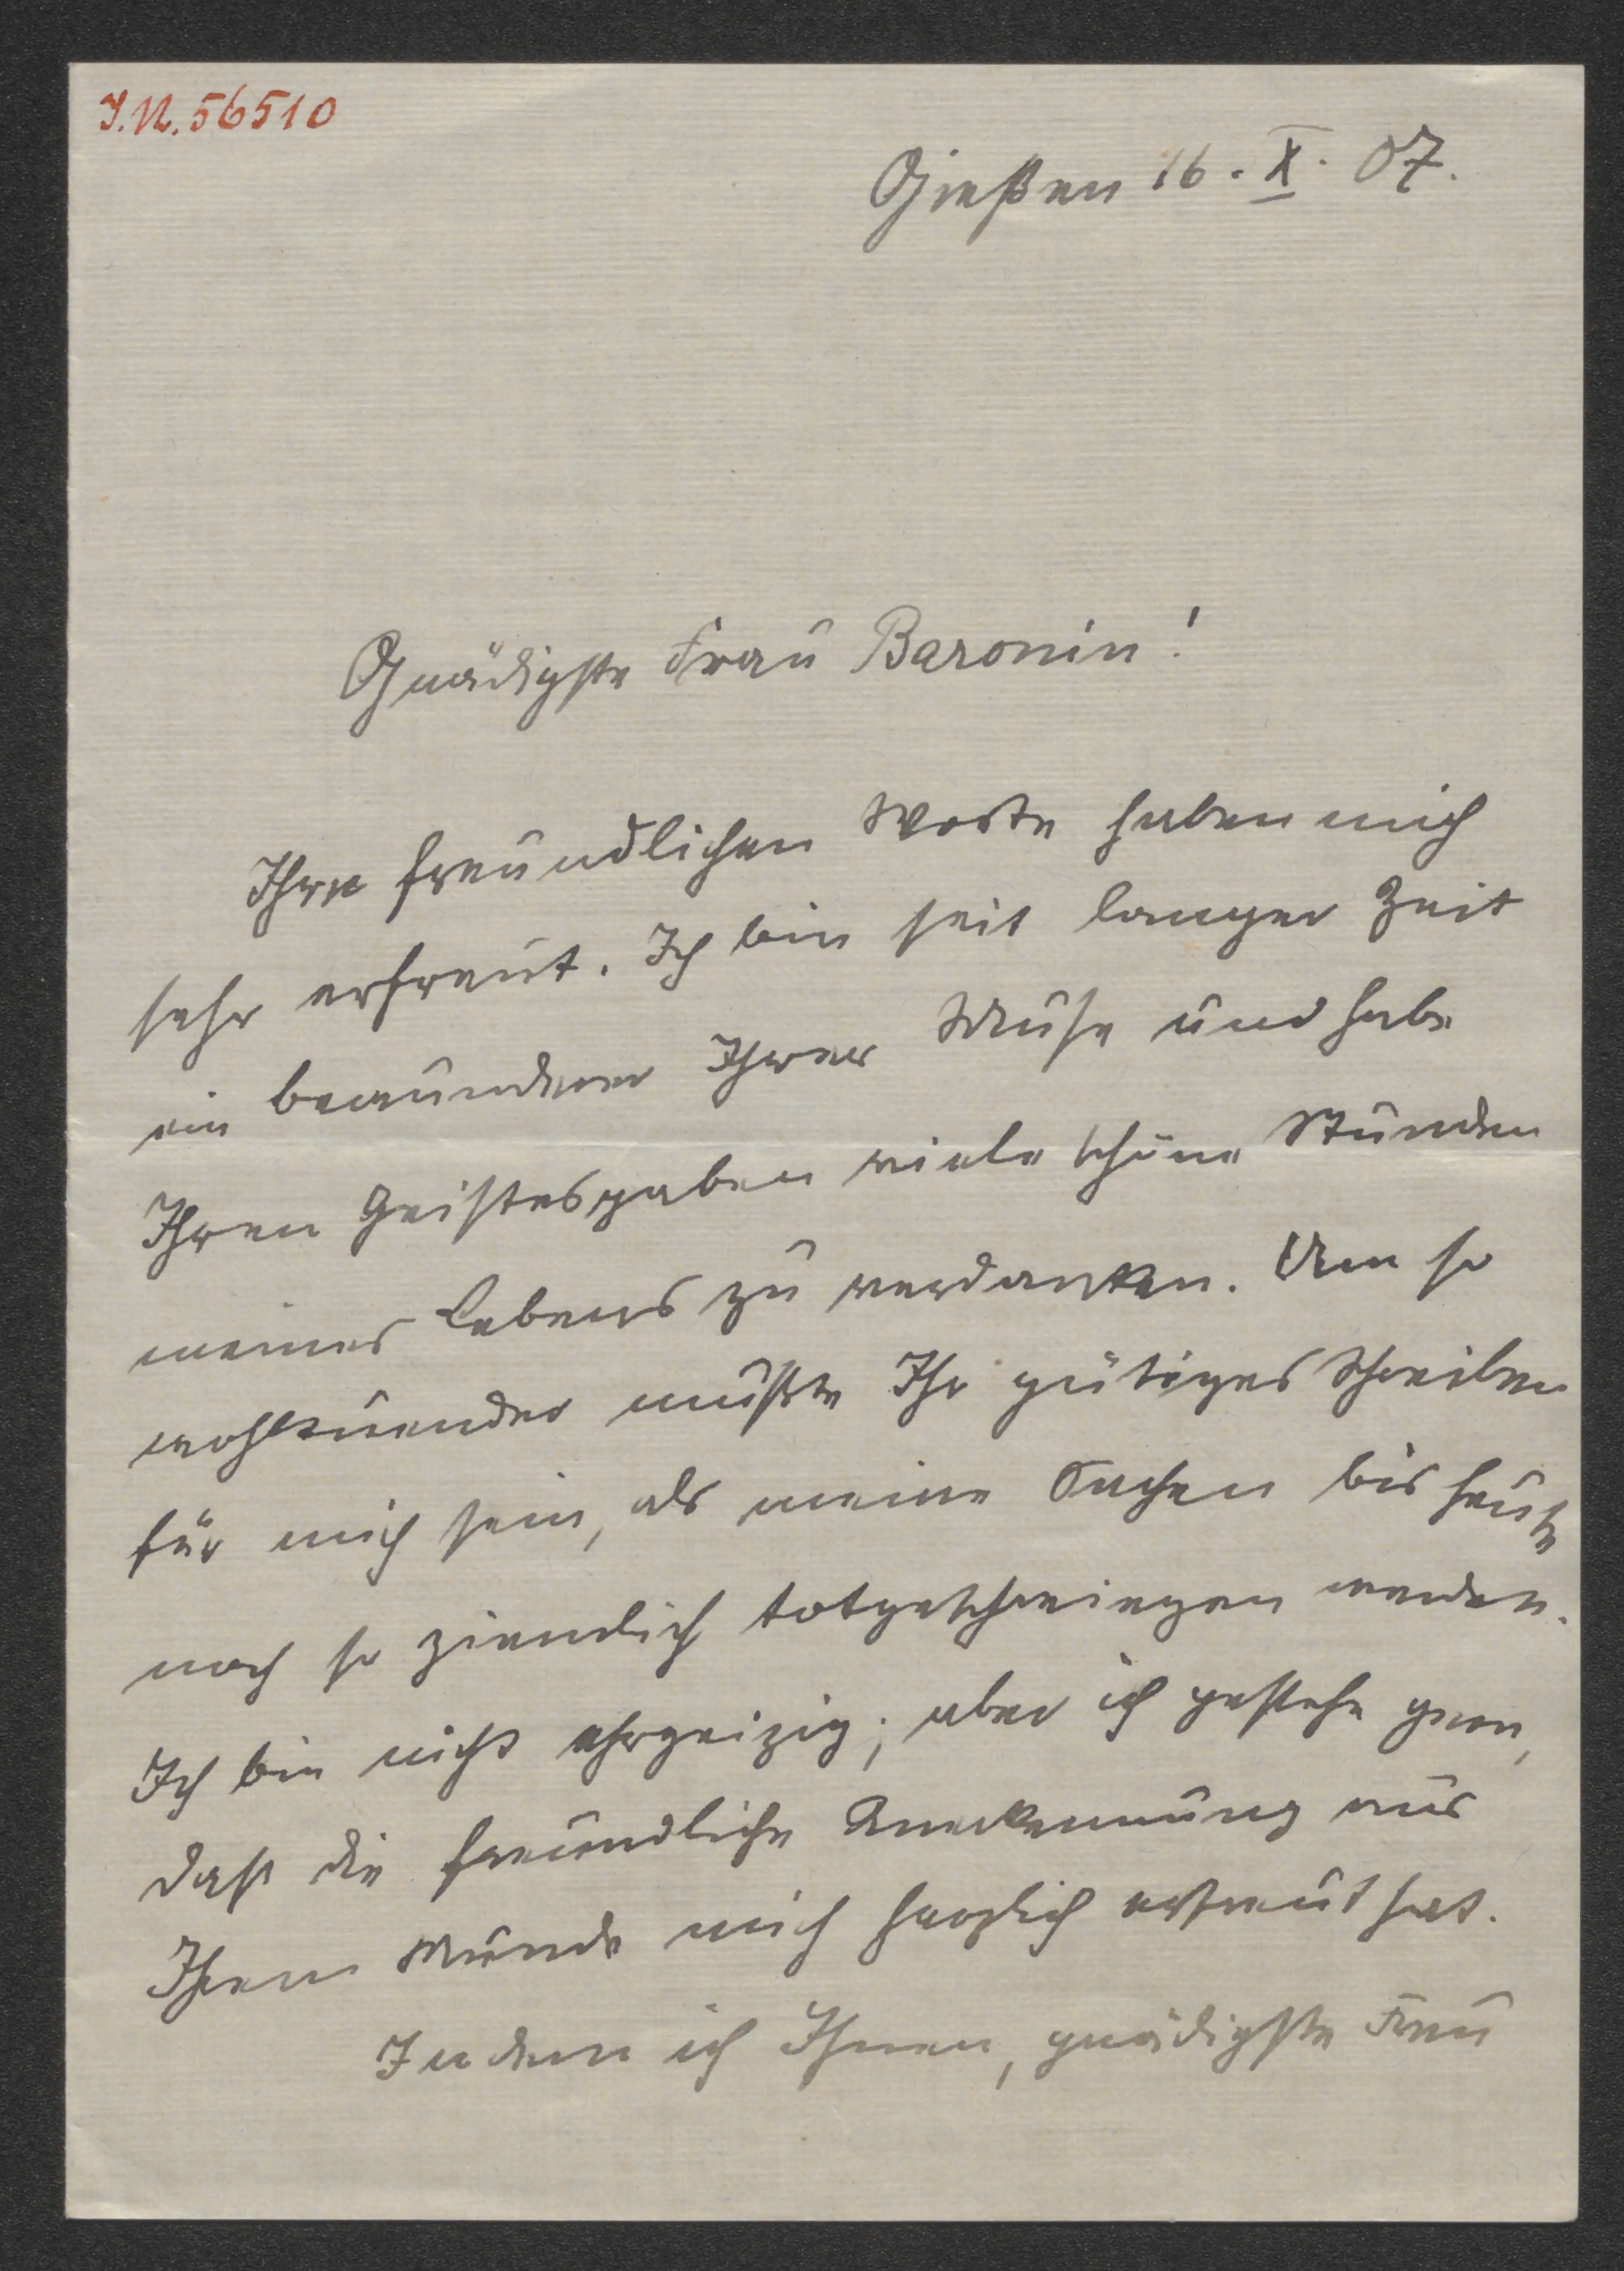 I.N. 56510
Gießen 16. X. 07.
Gnädigste Frau Baronin!
Ihre freundlichen Worte haben mich
sehr erfreut. Ich bin seit langer Zeit
ein Bewunderer Ihrer Muse und habe
Ihren Geistesgaben viele schöne Stunden
meines Lebens zu verdanken. Um so
wohltuender mußte Ihr gütiges Schreiben
für mich sein, als meine Sachen bis heute
noch so ziemlich totgeschwiegen werden.
Ich bin nicht ehrgeizig; aber ich gestehe gern,
daß die freundliche Anerkennung aus
Ihrem Munde mich herzlich erfreut hat.
Indem ich Ihnen, gnädigste Frau